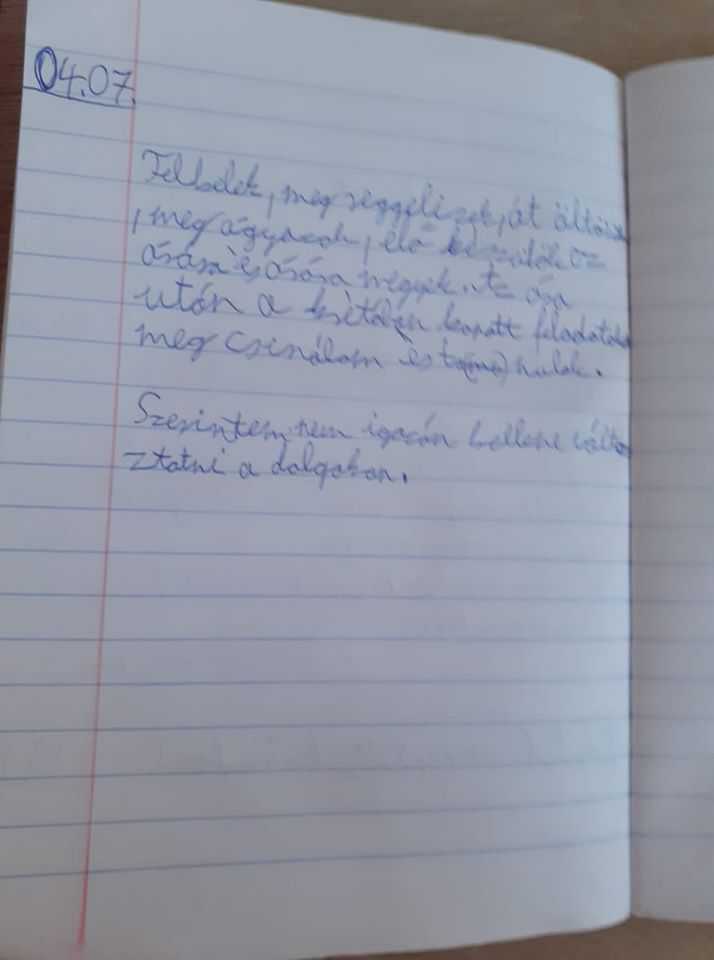 04.07.
Felkelek, meg reggelizek, át öltözök
, meg ágyazok, elő készülök az
órára és órára megyek. Az óra
után a krétában kapott feladatokat
meg csinálom és tanulok.
Szerintem nem igazán kellene válto
ztatni a dolgokon.